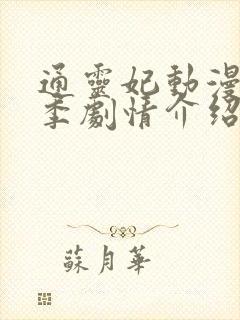 通靈妃動漫
季劇情介紹
蘇月華